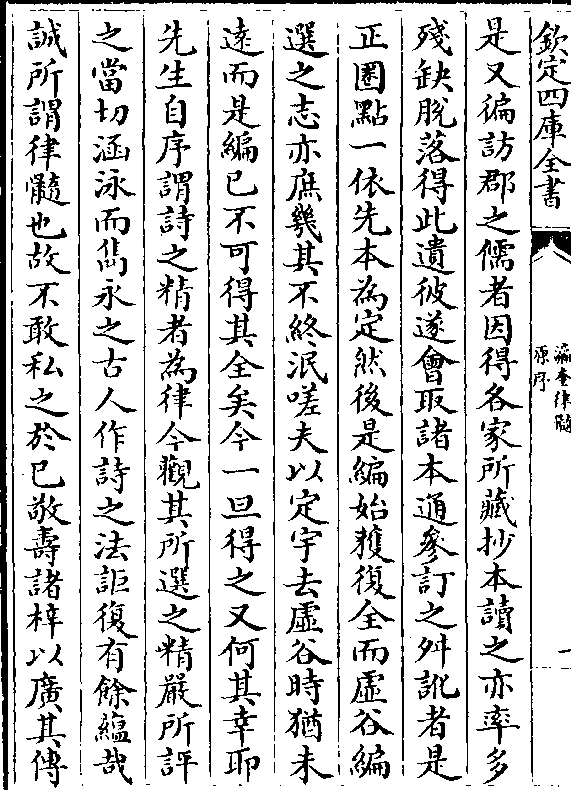 欽定四庫全書
瀛奎律髓
原序
一
是又徧訪郡之儒者因得各家所藏抄本讀之亦率多
殘缺脫落得此遺彼遂會取諸本通參訂之舛訛者是
正圏點一依先本為定然後是編始獲復全而虛谷編
選之志亦庶幾其不終泯嗟夫以定宇去虛谷時猶未
逺而是編已不可得其全矣今一旦得之又何其幸耶
先生自序謂詩之精者為律今觀其所選之精嚴所評
之當切涵泳而雋永之古人作詩之法詎復有餘緼哉
誠所謂律髓也故不敢私之於已敬壽諸梓以廣其傳